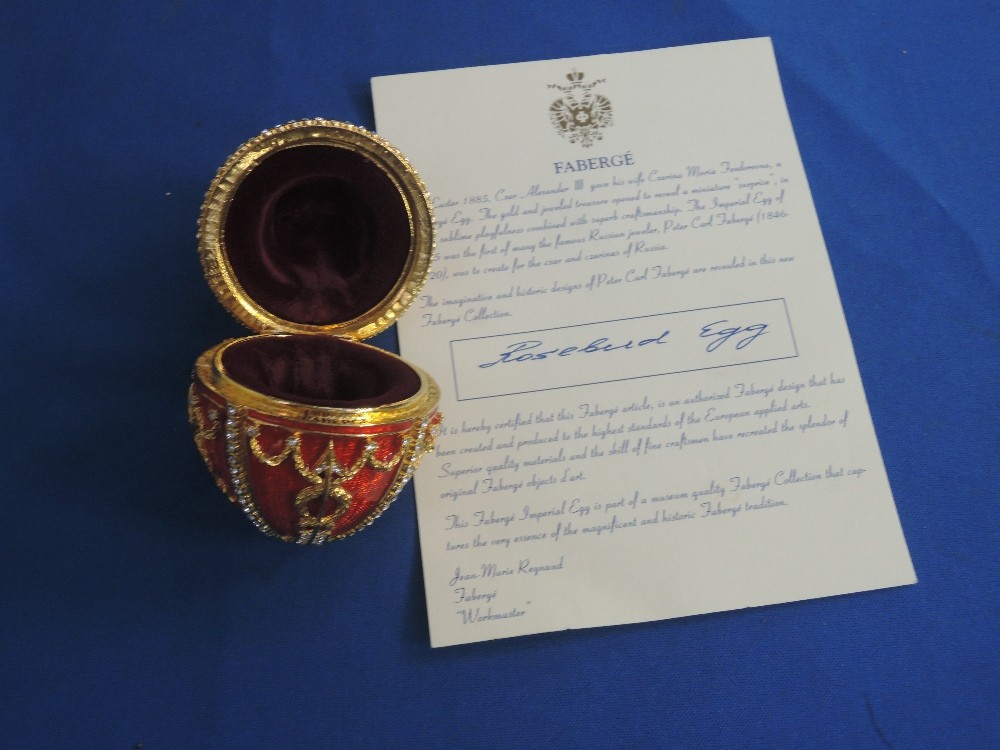 FABERGÉ
Easter 1885, Czar Alexander III gave his wife Czarina Maria Feodorovna, a
Egg. The gold and jeweled treasure opened to reveal a miniature "surprise", in
sublime playfulness combined with superb craftsmanship. The Imperial Egg of
was the first of many the famous Russian jeweler, Peter Carl Fabergé (1846-
20), was to create for the czar and czarinas of Russia.
The imaginative and historic designs of Peter Carl Fabergé are revealed in this new
Fabergé Collection.
Rosebud Egg
It is hereby certified that this Fabergé article, is an authorized Fabergé design that has
been created and produced to the highest standards of the European applied arts.
Superior quality materials and the skill of fine craftsmen have recreated the splendor of
original Fabergé objects d'art.
This Fabergé Imperial Egg is part of a museum quality Fabergé Collection that cap-
tures the very essence of the magnificent and historic Fabergé tradition.
Jean-Marie Reynaud
Fabergé
"Workmaster"